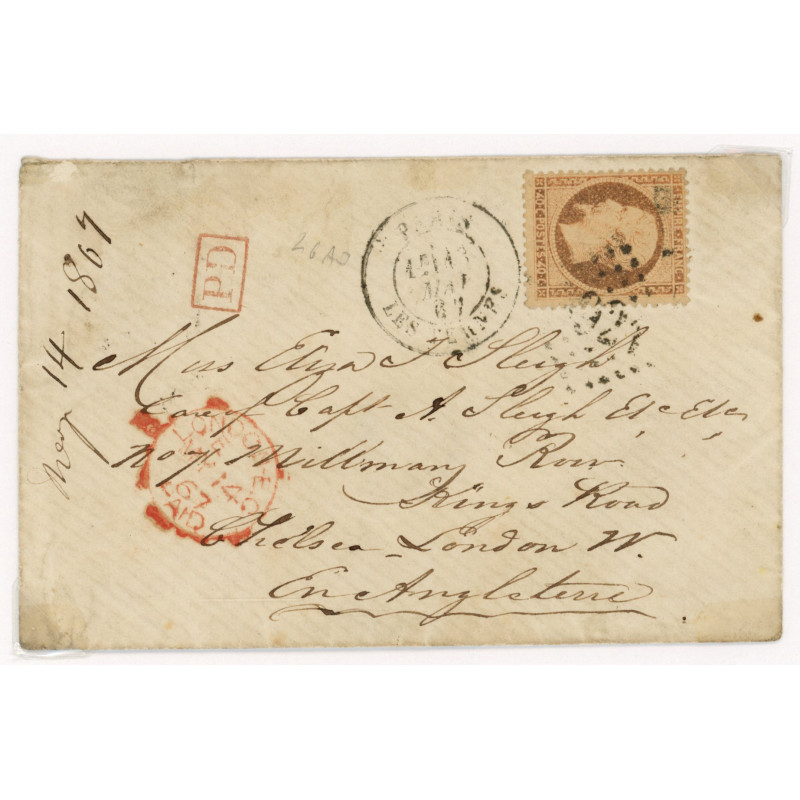 May 14 1867
PD
26 AO
PLAIN
13
MAI
67
LES TERNES
EMPIRE FRANC
40 C POSTES 40 C
Miss Eliza T Sleigh
Care of Capt A. Sleigh Etc Etc
No 7 Millmans Row
Kings Road
Chelsea London W.
En Angleterre
LONDON
14
67
PAID